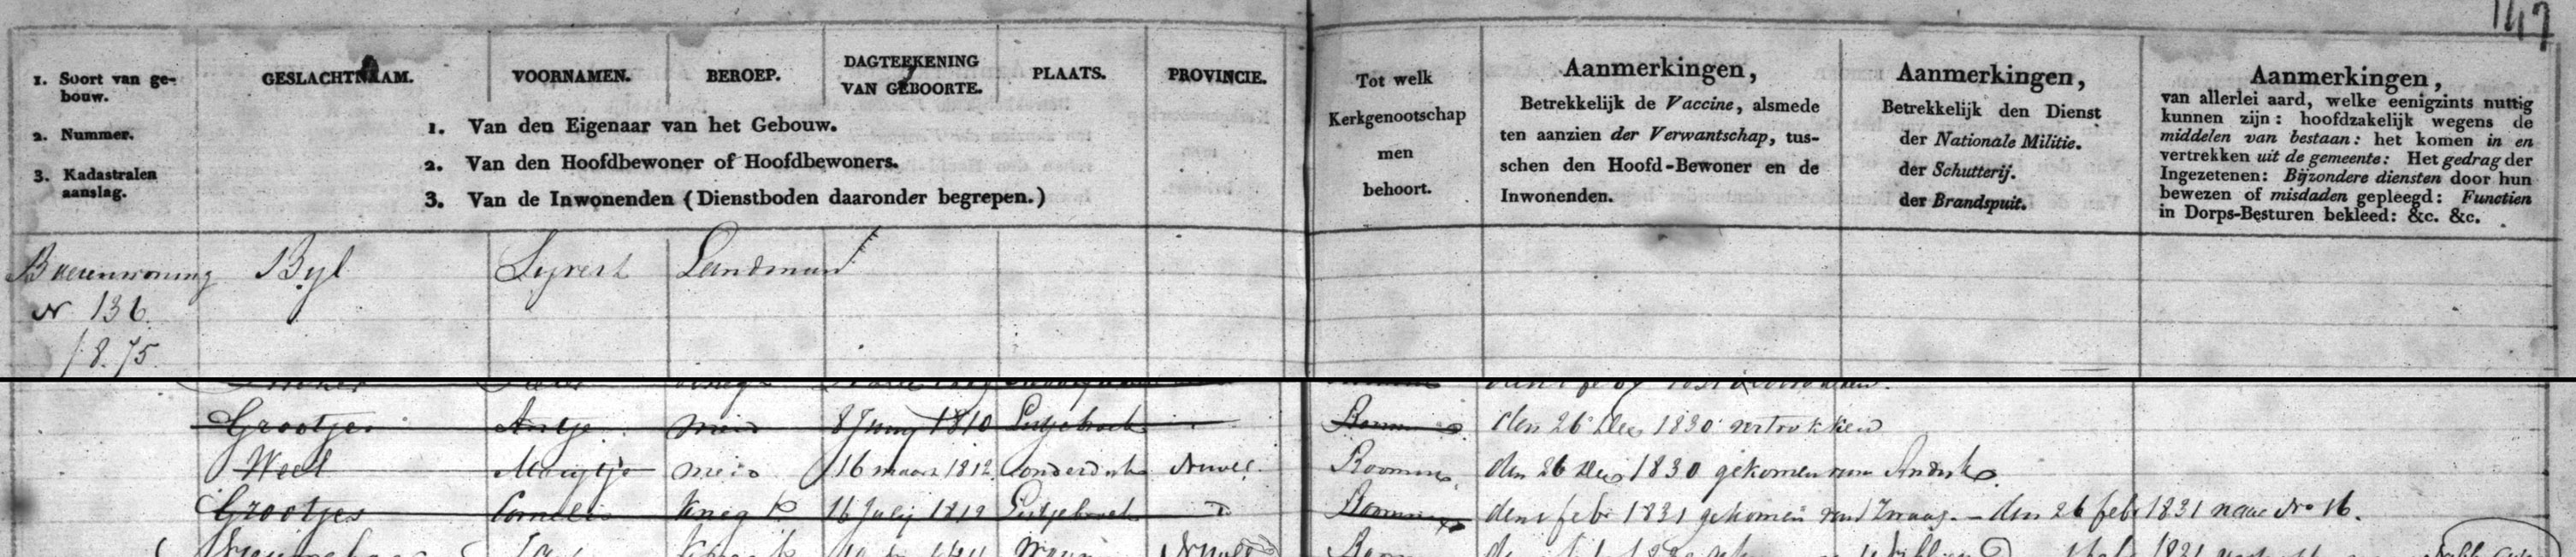 147
1. Soort van ge-
bouw.
2. Nummer.
3. Kadastralen
aanslag.
GESLACHTNAAM. VOORNAMEN. BEROEP. DAGTEEKENING
VAN GEBOORTE. PLAATS. PROVINCIE.
1. Van den Eigenaar van het Gebouw.
2. Van den Hoofdbewoner of Hoofdbewoners.
3. Van de Inwonenden (Dienstboden daaronder begrepen.)
Tot welk
Kerkgenootschap
men
behoort.
Aanmerkingen,
Betrekkelijk de Vaccine, alsmede
ten aanzien der Verwantschap, tus-
schen den Hoofd-Bewoner en de
Inwonenden.
Aanmerkingen,
Betrekkelijk den Dienst
der Nationale Militie.
der Schutterij.
der Brandspuit.
Aanmerkingen,
van allerlei aard, welke eenigzints nuttig
kunnen zijn: hoofdzakelijk wegens de
middelen van bestaan: het komen in en
vertrekken uit de gemeente: Het gedrag der
Ingezetenen: Bijzondere diensten door hun
bewezen of misdaden gepleegd: Functien
in Dorps-Besturen bekleed: &c. &c.
Boerenwoning Byl Syvert Landman
N 136.
f 8.75.
Grootjes Antje meid 8 Juny 1810 Lutjebroek den 26 Dec 1830 vertrokken
Weel Marytje meid 16 maart 1812 onderdyk Roomse den 26 Dec 1830 gekomen van Andyk
Grootjes Cornelis Knegt 16 July 1812 Lutjebroek den feb 1831 gekomen van Zwaag. - den 26 feb 1831 naar No 16.